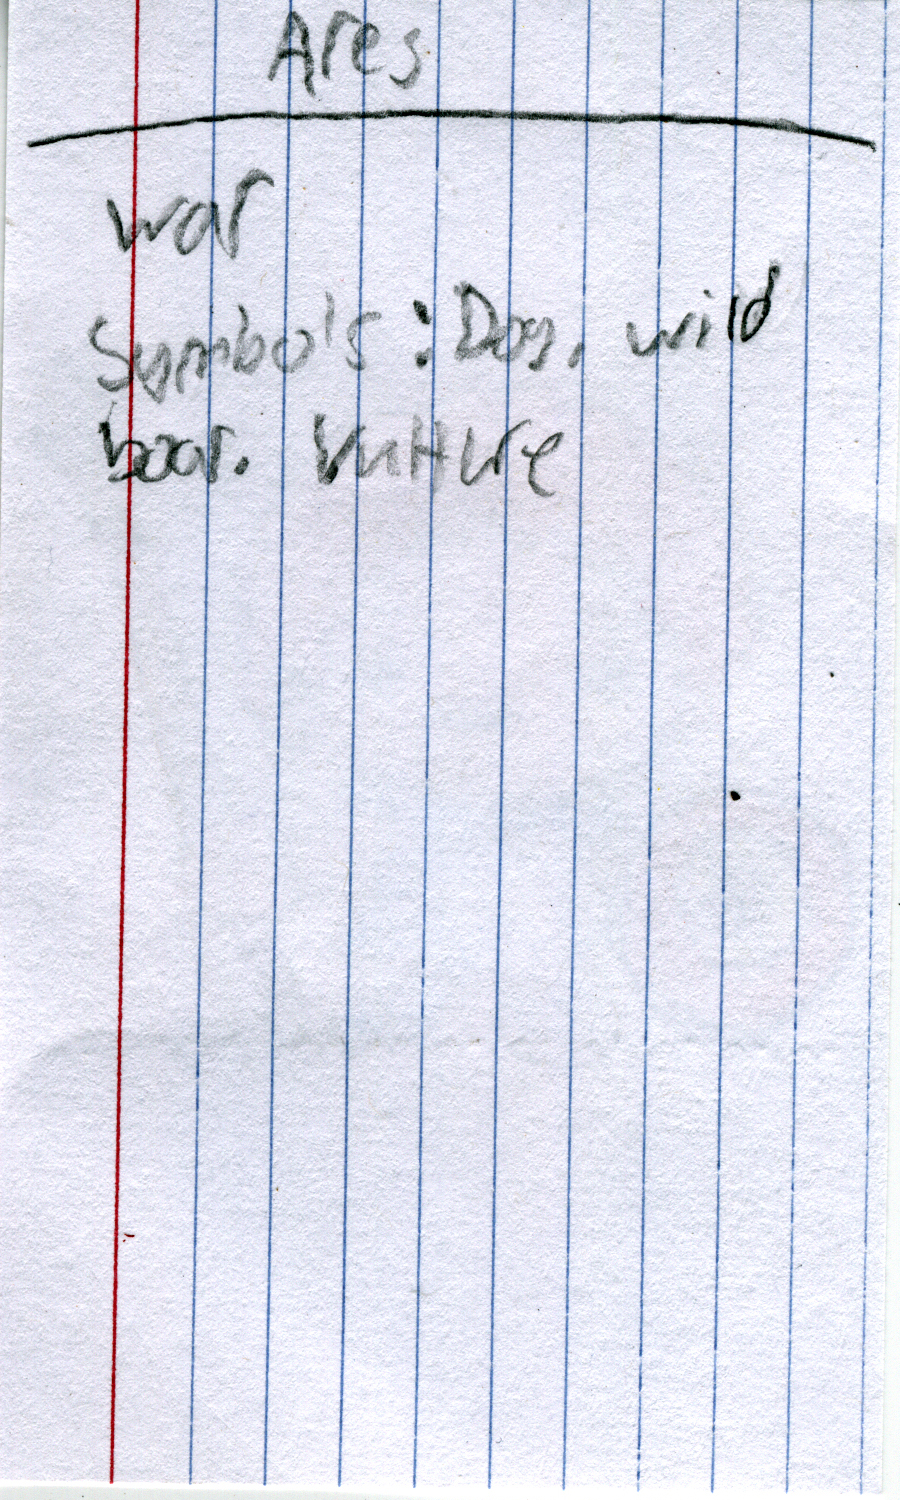 Ares
war
Symbol's : Dog, wild
boar. Vulture